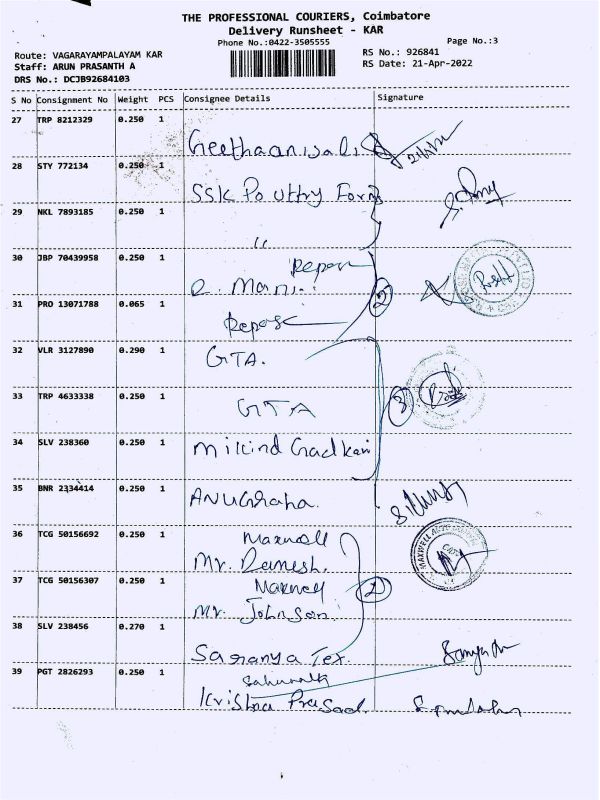 THE PROFESSIONAL COURIERS, Coimbatore
Delivery Runsheet - KAR
Phone No.:0422-3505555 Page No.:3
Route: VAGARAYAMPALAYAM KAR RS No.: 926841
Staff: ARUN PRASANTH A RS Date: 21-Apr-2022
DRS No.: DCJB92684103
S No Consignment No Weight PCS Consignee Details Signature
27 TRP 8212329 0.250 1
28 STY 772134 0.250 1
SSK Poultry Form
29 NKL 7893185 0.250 1
"
30 JBP 70439958 0.250 1
Repose
R. Mani. 2
31 PRO 13071788 0.065 1
Repose
32 VLR 3127890 0.290 1
GTA.
33 TRP 4633338 0.250 1
GTA 3
34 SLV 238360 0.250 1
Milind Gadkari
35 BNR 2334414 0.250 1
ANUGraha.
36 TCG 50156692 0.250 1
Maxwell
Mr. Ramesh.
37 TCG 50156307 0.250 1
Maxwell 2
Mr. Johnson.
38 SLV 238456 0.270 1
Saranya Tex
39 PGT 2826293 0.250 1
Krishna Prasad.